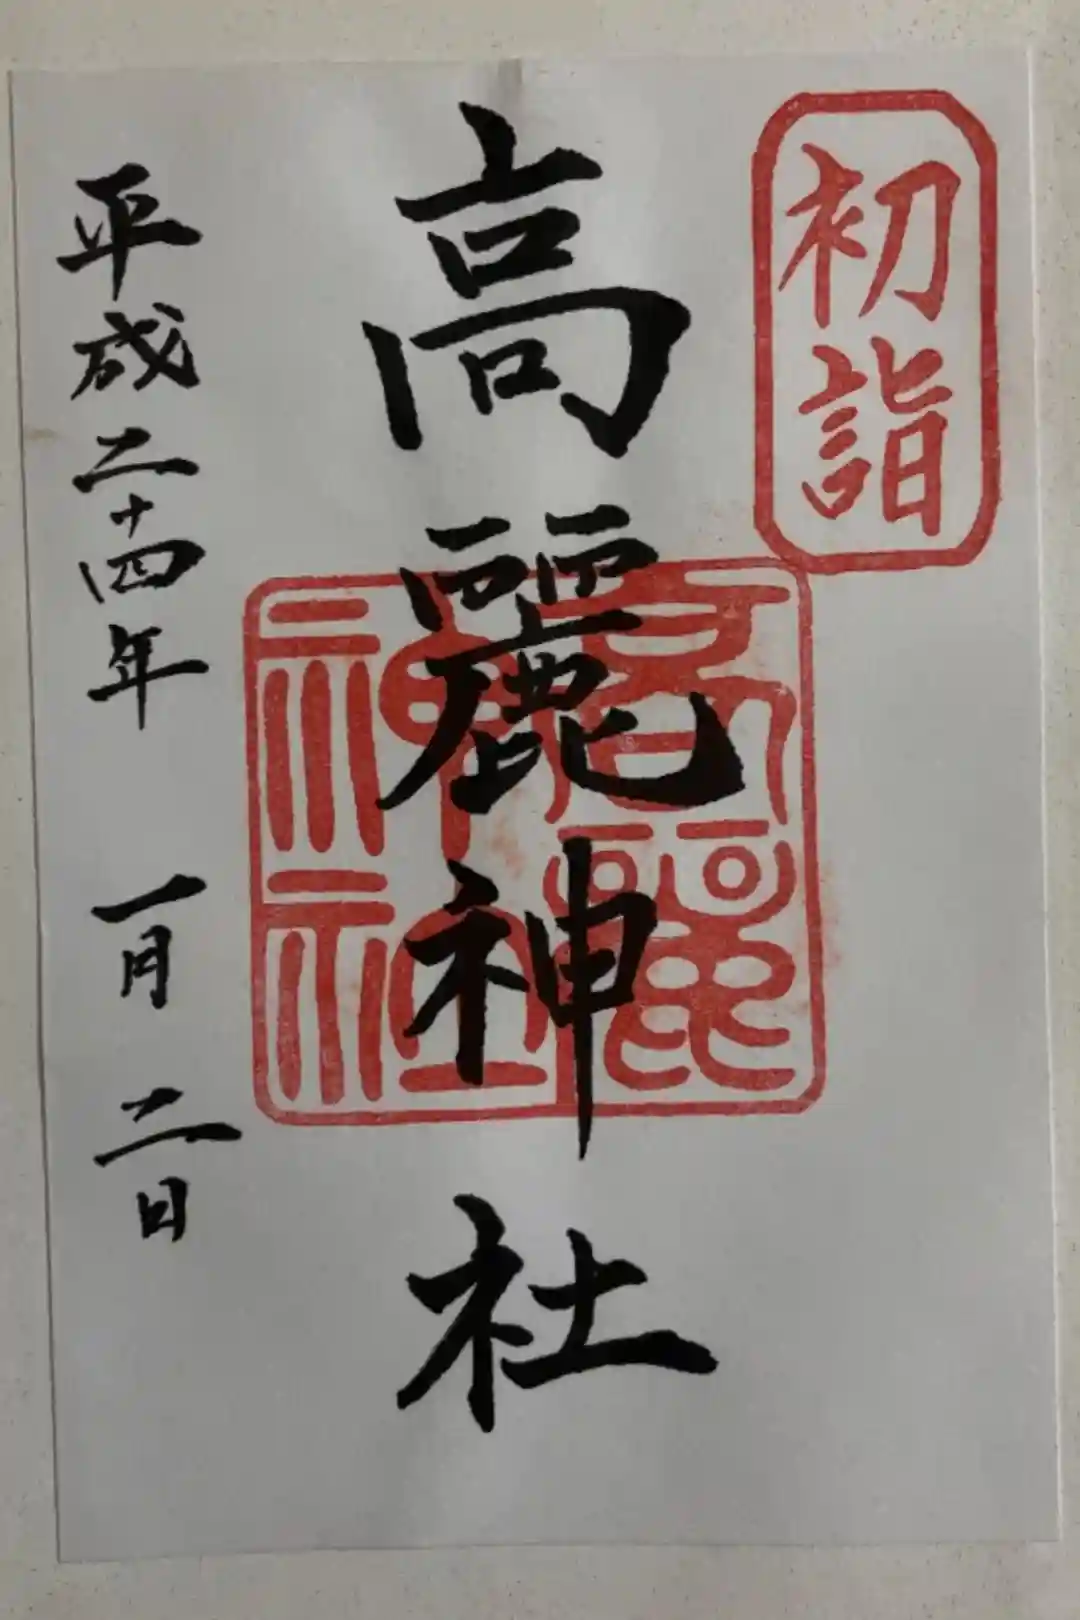 初詣
高麗神社
高麗神社
平成二十四年 一月二日